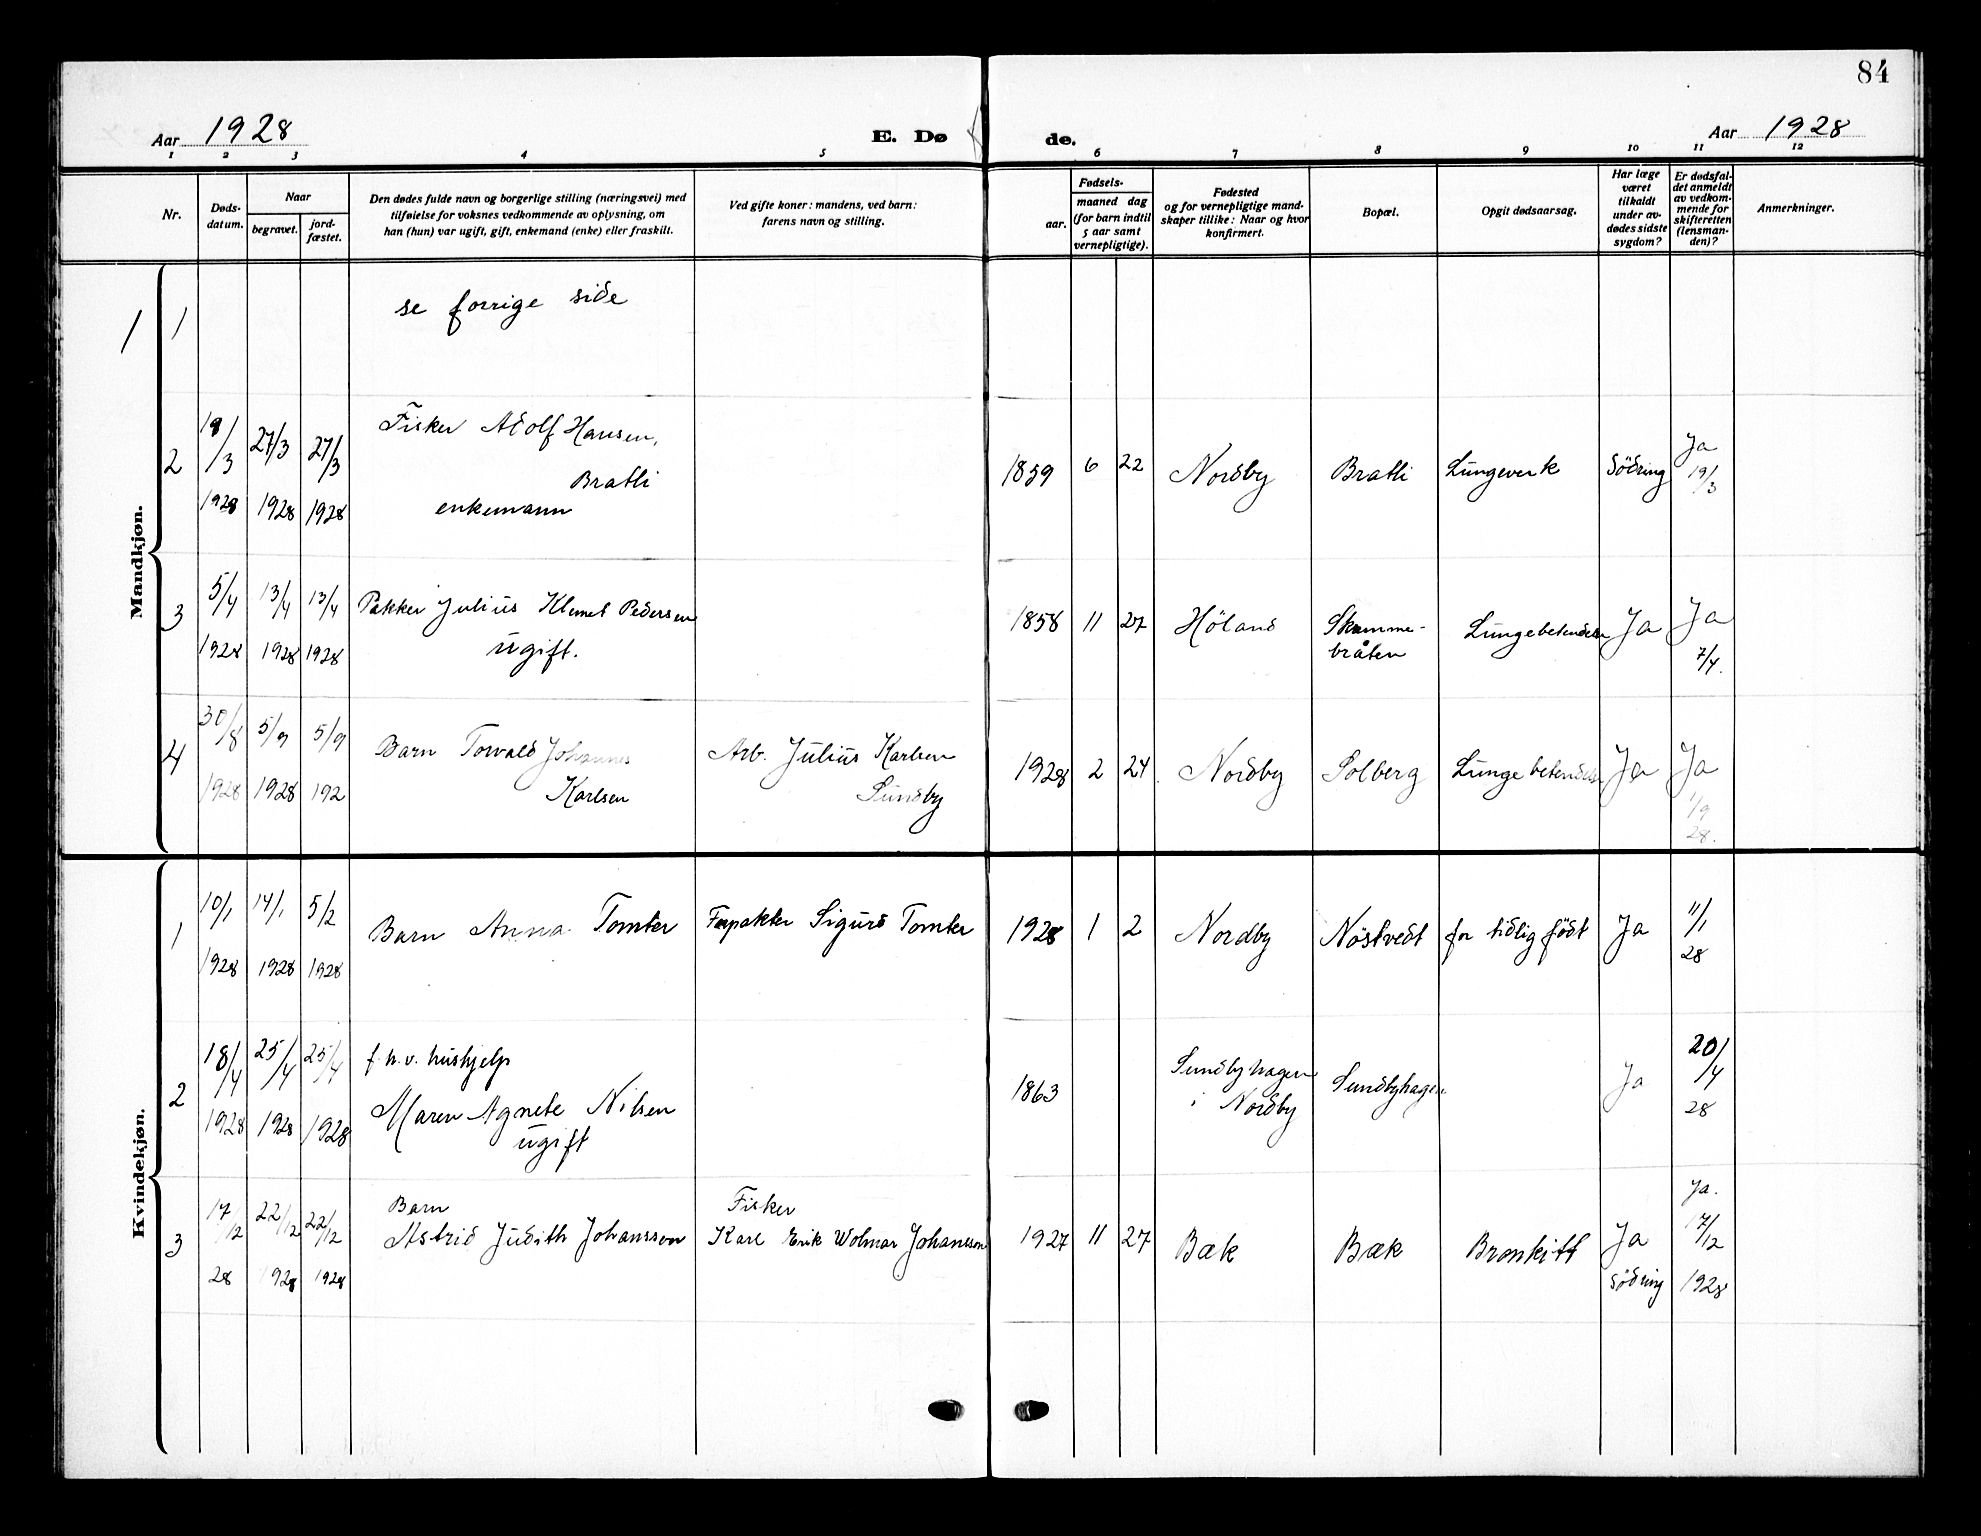 84
Aar 1928
E. Dø
de.
Aar 1928
1 2 3 4 5 6 7 8 9 10 11 12
Nr.
Døds-
datum.
Naar
begravet.
jord-
fæstet.
Den dødes fulde navn og borgerlige stilling (næringsvei) med
tilføielse for voksnes vedkommende av oplysning, om
han (hun) var ugift, gift, enkemand (enke) eller fraskilt.
Ved gifte koner: mandens, ved barn:
farens navn og stilling.
Fødsels-
aar.
maaned dag
(for barn indtil
5 aar samt
vernepligtige).
Fødested
og for vernepligtige mand-
skaper tillike: Naar og hvor
konfirmert.
Bopæl.
Opgit dødsaarsag.
Har læge
været
tilkaldt
under av-
dødes sidste
sygdom?
Er dødsfal-
det anmeldt
av vedkom-
mende for
skifteretten
(lensman-
den)?
Anmerkninger.
Mandkjøn.
1
1
se forrige side
2
18/3
1928
27/3
1928
27/3
1928
Fisker Adolf Hansen,
Bratli
enkemann
1859
6
22
Nordby
Bratli
Lungeverk
Södring
Ja
19/3
3
5/4
1928
13/4
1928
13/4
1928
Pakker Julius Klemet Pedersen
ugift.
1858
11
27
Höland
Skamme-
bråten
Lungebetendelse
Ja
Ja
7/4.
4
30/8
1928
5/9
1928
5/9
192
Barn Torvald Johannes
Karlsen
Arb. Julius Karlsen
Sundby
1928
2
24.
Nordby
Solberg
Lungebetendelse
Ja
Ja
1/9
28.
Kvindekjøn.
1
10/1
1928
14/1
1928
5/2
1928
Barn Anna Tomter
Forpakter Sigurd Tomter
1928
1
2
Nordby
Nöstvedt
for tidlig födt
Ja
11/1
28
2
18/4
1928
25/4
1928
25/4
1928
f. h.v. hushjelp
Maren Agnete Nilsen
ugift
1863
Sundbyhagen
i Nordby
Sundbyhagen
Ja
20/4
28
3
17/12
28
22/12
1928
22/12
1928
Barn
Astrid Judith Johansson
Fisker
Karl Erik Wolmar Johansson
1927
11
27
Bæk
Bæk
Bronkitt
Ja
Södring
Ja.
17/12
1928